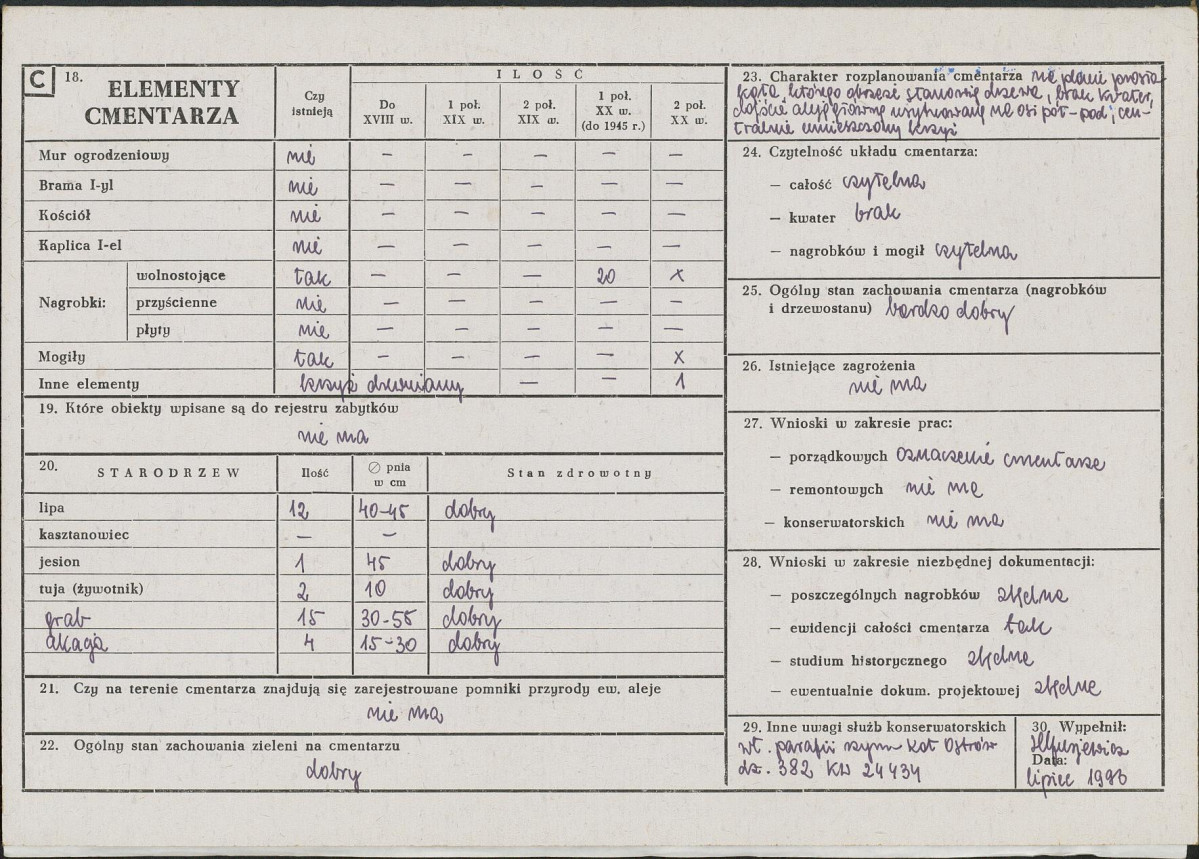 C 18. ELEMENTY CMENTARZA
Czy istnieją
ILOŚĆ
Do XVIII w.
1 poł. XIX w.
2 poł. XIX w.
1 poł. XX w. (do 1945 r.)
2 poł. XX w.
Mur ogrodzeniowy nie — — — — —
Brama I-yl nie — — — — —
Kościół nie — — — — —
Kaplica I-el nie — — — — —
Nagrobki:
wolnostojące tak — — — 20 x
przyścienne nie — — — — —
płyty nie — — — — —
Mogiły tak — — — — x
Inne elementy krzyż drewniany — — 1
19. Które obiekty wpisane są do rejestru zabytków
nie ma
20. STARODRZEW Ilość ∅ pnia w cm Stan zdrowotny
lipa 12 40-45 dobry
kasztanowiec — —
jesion 1 45 dobry
tuja (żywotnik) 2 10 dobry
grab 15 30-55 dobry
akacja 4 15-30 dobry
21. Czy na terenie cmentarza znajdują się zarejestrowane pomniki przyrody ew. aleje
nie ma
22. Ogólny stan zachowania zieleni na cmentarzu
dobry
23. Charakter rozplanowania cmentarza na planie prosto-
kąta, którego obrzeże stanowią drzewa, brak kwater,
dojście aleją główną usytuowaną na osi półn-połd; cen-
tralnie umieszczony krzyż
24. Czytelność układu cmentarza:
— całość czytelna
— kwater brak
— nagrobków i mogił czytelna
25. Ogólny stan zachowania cmentarza (nagrobków
i drzewostanu) bardzo dobry
26. Istniejące zagrożenia
nie ma
27. Wnioski w zakresie prac:
— porządkowych oznaczenie cmentarza
— remontowych nie ma
— konserwatorskich nie ma
28. Wnioski w zakresie niezbędnej dokumentacji:
— poszczególnych nagrobków zbędna
— ewidencji całości cmentarza tak
— studium historycznego zbędne
— ewentualnie dokum. projektowej zbędne
29. Inne uwagi służb konserwatorskich
wł. parafii rzym kat Ostrów
dz. 382 KW 24434
30. Wypełnił:
Data:
lipiec